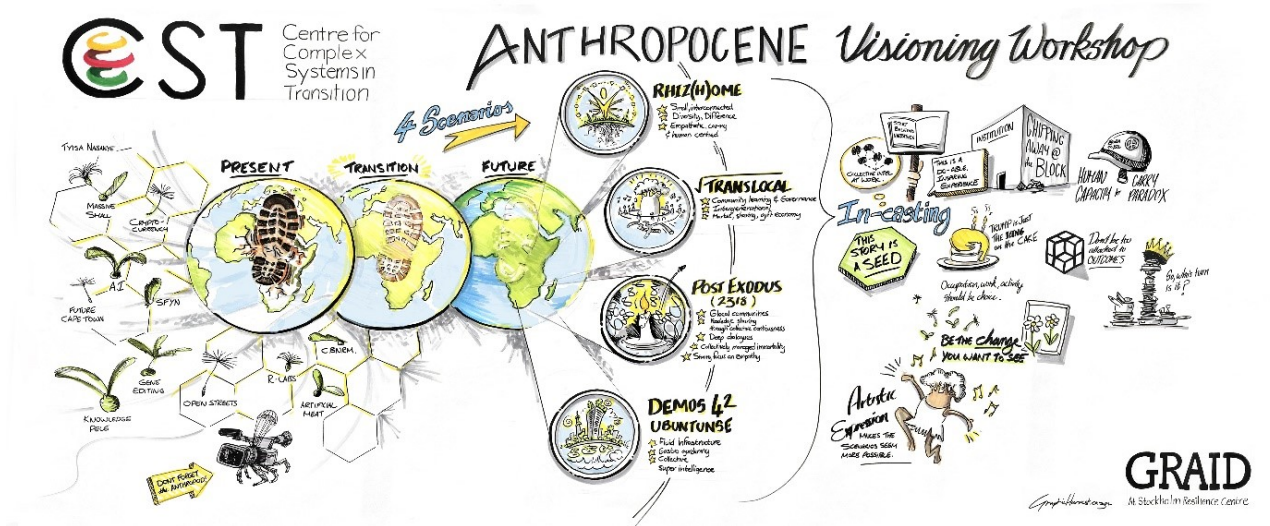 CST
Centre for
Complex
Systems in
Transition
ANTHROPOCENE Visioning Workshop
4 Scenarios
PRESENT
TRANSITION
FUTURE
MASSIVE
SMALL
CRYPTO-
CURRENCY
A.I
SFYN
FUTURE
CAPE TOWN
GENE
EDITING
KNOWLEDGE
POLE
OPEN STREETS
R-LABS
C.B.N.R.M.
ARTIFICIAL
MEAT
DON'T FORGET
the ANTHROPODS!
RHIZ(H)OME
Small, interconnected
Diversity, Difference
Empathetic, caring
& human centred
TRANSLOCAL
Community learning & Governance
Intergenerational
Market, sharing, gift economy
POST EXODUS
(2318)
Glocal communities
Knowledge sharing
through collective
Deep dialogues
Collectively managed
Strong focus on empathy
DEMOS 42
UBUNTUNSE
Fluid Infrastructure
Gastro
Collective
Super intelligence
COLLECTIVE INTEL
AT WORK
THIS IS A
INSPIRING
EXPERIENCE
INSTITUTION
CHIPPING
AWAY @
the BLOCK
HUMAN
CAPACITY to
CARRY
PARADOX
In-casting
THIS
STORY IS
A SEED
TRUMP IS JUST
THE ICING
on the CAKE
Don't be too
attached to
OUTCOMES
So, who's turn
is it?
Occupation, work, activity
should be choice.
BE THE change
YOU WANT TO SEE
Artistic
Expression
MAKES THE
SCENARIOS SEEM
MORE POSSIBLE.
GRAID
At Stockholm Resilience Centre